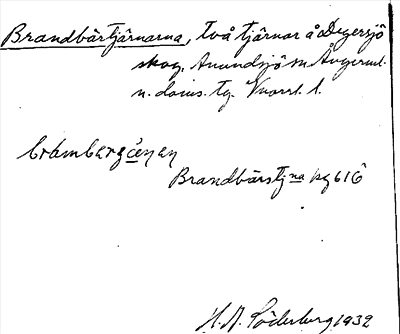 Brandbärtjärnarna, två tjärnar å Degersjö
skog, Anundsjö sn Ångerml.
n. doms. tg. Vnorrl. l.
Brandbärstjna
H. A. Söderberg 1932